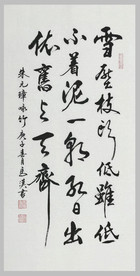 雪壓枝头低雖低
不着泥一朝红日出
依舊与天齊
朱元璋咏竹庚子春月書